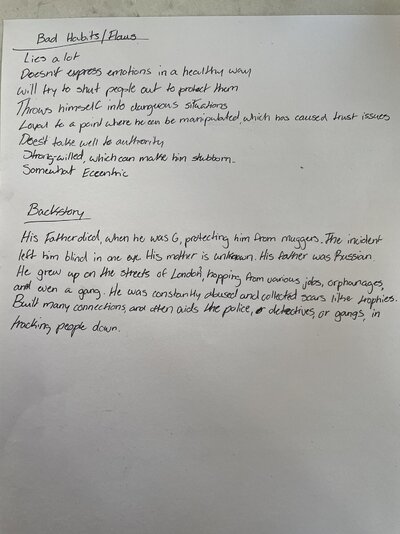 Bad Habits/Flaws
Lies a lot
Doesn't express emotions in a healthy way
Will try to shut people out to protect them
Throws himself into dangerous situations
Loyal to a point where he can be manipulated, which has caused trust issues
Doesn't take well to authority
Strong-willed, which can make him stubborn.
Somewhat Eccentric
Backstory
His Father died, when he was 6, protecting him from muggers. The incident
left him blind in one eye. His mother is unknown. His father was Russian.
He grew up on the streets of London, hopping from various jobs, orphanages,
and even a gang. He was constantly abused and collected scars like trophies.
Built many connections, and often aids the police, or detectives, or gangs, in
tracking people down.